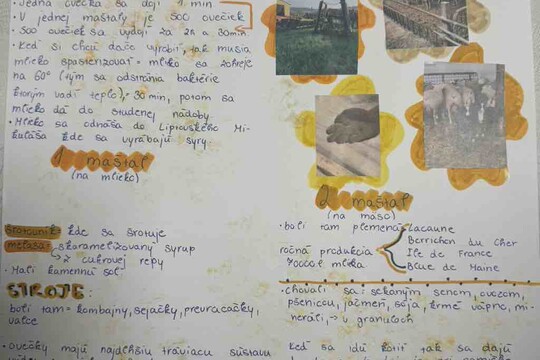 Jedna ovečka sa dojí 1 min
• V jednej maštaľy je 500 ovečiek
• 500 ovečiek sa vydojí za 2h a 30min
• Keď si chcú dačo vyrobiť, tak musia
mlieko spasterizovať = mlieko sa zohreje
na 60° (tým sa odstránia baktérie
ktorým vadí teplo), 30 min, potom sa
mlieko dá do studenej nádoby
• Mlieko sa odnáša do Liptovského Mi-
kuláša kde sa vyrábajú syry
1 maštaľ
(na mlieko)
Šrotovník kde sa šrotuje
melasa = skaramelizovaný syrup
z cukrovej repy
• Mali kamennú soľ
STROJE:
boli tam = kombajny, sejačky, prevracačky,
valce
• ovečky majú najdlhšiu tráviacu sústavu
2 maštaľ
(na mäso)
• boli tam plemená
Lacaune
Berrichon du Cher
Ile de France
Bleue de Maine
ročná produkcia
70000 l mlieka
• chovali sa: sekaným senom, ovozom,
pšenicou, jačmeň, sója, kŕmne vápno, mi-
nerali, -> v granuliach
Keď sa idú kotiť tak sa dajú